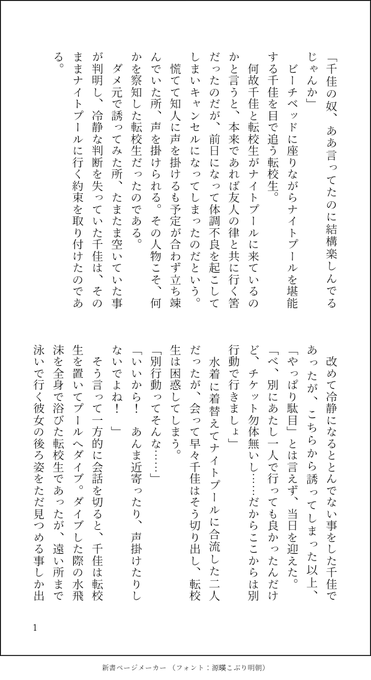 「千佳の奴、ああ言ってたのに結構楽しんでる
じゃんか」
　ビーチベッドに座りながらナイトプールを堪能
する千佳を目で追う転校生。
　何故千佳と転校生がナイトプールに来ているの
かと言うと、本来であれば友人の律と共に行く筈
だったのだが、前日になって体調不良を起こして
しまいキャンセルになってしまったのだという。
　慌てて知人に声を掛けるも予定が合わず立ち竦
んでいた所、声を掛けられる。その人物こそ、何
かを察知した転校生だったのである。
　ダメ元で誘ってみた所、たまたま空いていた事
が判明し、冷静な判断を失っていた千佳は、その
ままナイトプールに行く約束を取り付けたのであ
る。
　改めて冷静になるととんでない事をした千佳で
あったが、こちらから誘ってしまった以上、
「やっぱり駄目」とは言えず、当日を迎えた。
「べ、別にあたし一人で行っても良かったんだけ
ど、チケット勿体無いし……だからここからは別
行動で行きましょ」
　水着に着替えてナイトプールに合流した二人
だったが、会って早々千佳はそう切り出し、転校
生は困惑してしまう。
「別行動ってそんな……」
「いいから！　あんま近寄ったり、声掛けたりし
ないでよね！　」
　そう言って一方的に会話を切ると、千佳は転校
生を置いてプールへダイブ。ダイブした際の水飛
沫を全身で浴びた転校生であったが、遠い所まで
泳いで行く彼女の後ろ姿をただ見つめる事しか出
1
新書ページメーカー（フォント：源暎こぶり明朝）